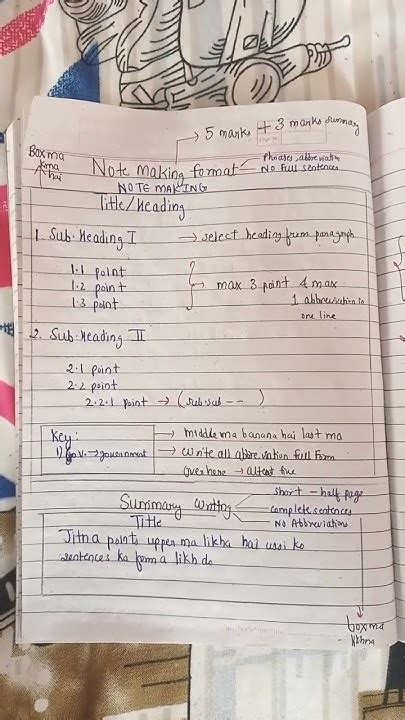 → 5 marks + 3 marks summary
Box ma
hai
Note making format
Phrases, abbreviation
No full sentences
NOTE MAKING
Title/Heading
1. Sub. Heading I → select heading from paragraph
1.1 point
1.2 point
1.3 point
max 3 point & max
1 abbreviation in
one line
2. Sub. Heading II
2.1 point
2.2 point
2.2.1 point → (sub.sub -- )
Key:
1) gov. → government
→ middle ma banana hai last ma
→ write all abbreviation full form
over here → atleast five
Summary writing
short - half page
complete sentences
No Abbreviations
Title
Jitna points upper ma likha hai ussi ko
sentences ka form a likh do
box ma
likhna